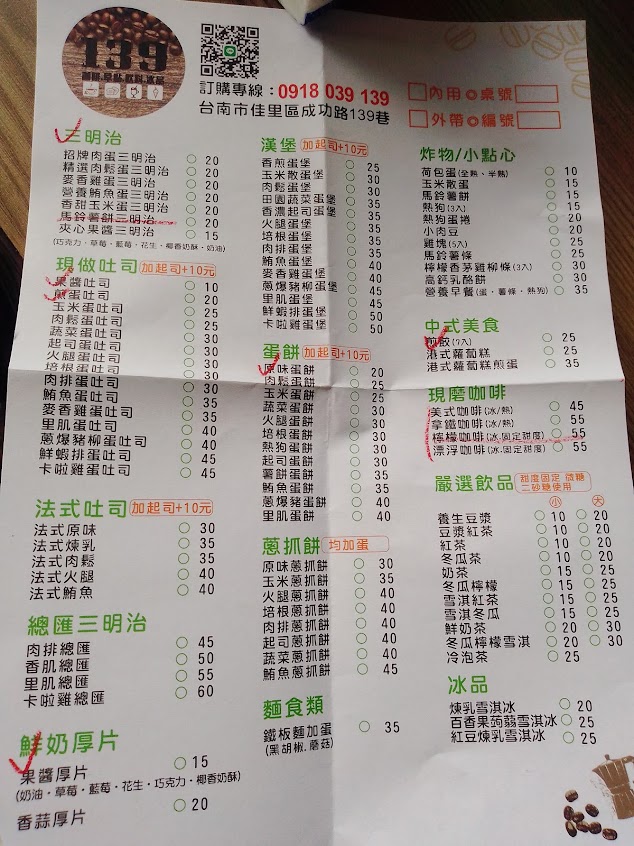 139
咖啡.早點.飲料.冰品
訂購專線：0918 039 139
台南市佳里區成功路139巷
內用 桌號
外帶 編號
三明治
招牌肉蛋三明治 20
精選肉鬆蛋三明治 20
麥香雞蛋三明治 20
營養鮪魚蛋三明治 20
香甜玉米蛋三明治 20
馬鈴薯餅三明治 20
夾心果醬三明治 15
(巧克力・草莓・藍莓・花生・椰香奶酥・奶油)
現做吐司 加起司+10元
果醬吐司 10
煎蛋吐司 20
玉米蛋吐司 25
肉鬆蛋吐司 25
蔬菜蛋吐司 30
起司蛋吐司 30
火腿蛋吐司 30
培根蛋吐司 30
肉排蛋吐司 30
鮪魚蛋吐司 35
麥香雞蛋吐司 35
里肌蛋吐司 40
蔥爆豬柳蛋吐司 40
鮮蝦排蛋吐司 45
卡啦雞蛋吐司 45
法式吐司 加起司+10元
法式原味 30
法式煉乳 35
法式肉鬆 35
法式火腿 40
法式鮪魚 40
總匯三明治
肉排總匯 45
香肌總匯 50
里肌總匯 55
卡啦雞總匯 60
鮮奶厚片
果醬厚片 15
(奶油・草莓・藍莓・花生・巧克力・椰香奶酥)
香蒜厚片 20
漢堡 加起司+10元
香煎蛋堡 25
玉米散蛋堡 30
肉鬆蛋堡 30
田園蔬菜蛋堡 35
香濃起司蛋堡 35
火腿蛋堡 35
培根蛋堡 35
肉排蛋堡 35
鮪魚蛋堡 40
麥香雞蛋堡 40
蔥爆豬柳蛋堡 45
里肌蛋堡 45
鮮蝦排蛋堡 50
卡啦雞蛋堡 50
蛋餅 加起司+10元
原味蛋餅 20
肉鬆蛋餅 25
玉米蛋餅 25
蔬菜蛋餅 30
火腿蛋餅 30
培根蛋餅 30
熱狗蛋餅 30
起司蛋餅 30
薯餅蛋餅 35
鮪魚蛋餅 35
蔥爆豬蛋餅 40
里肌蛋餅 40
蔥抓餅 均加蛋
原味蔥抓餅 30
玉米蔥抓餅 35
火腿蔥抓餅 40
培根蔥抓餅 40
肉排蔥抓餅 40
起司蔥抓餅 40
蔬菜蔥抓餅 40
鮪魚蔥抓餅 45
麵食類
鐵板麵加蛋 35
(黑胡椒.蘑菇)
炸物/小點心
荷包蛋(全熟、半熟) 10
玉米散蛋 15
馬鈴薯餅 15
熱狗(3入) 15
熱狗蛋捲 20
小肉豆 20
雞塊(5入) 25
馬鈴薯條 25
檸檬香茅雞柳條(3入) 30
高鈣乳酪餅 30
營養早餐(蛋、薯條、熱狗) 35
中式美食
煎餃(7入) 25
港式蘿蔔糕 25
港式蘿蔔糕煎蛋 35
現磨咖啡
美式咖啡(冰/熱) 45
拿鐵咖啡(冰/熱) 55
檸檬咖啡(冰.固定甜度) 55
漂浮咖啡(冰.固定甜度) 55
嚴選飲品 甜度固定 微糖 二砂糖使用
小 大
養生豆漿 10 20
豆漿紅茶 10 20
紅茶 10 20
冬瓜茶 10 20
奶茶 15 25
冬瓜檸檬 15 25
雪淇紅茶 15 25
雪淇冬瓜 15 25
鮮奶茶 20 30
冬瓜檸檬雪淇 20 30
冷泡茶 25
冰品
煉乳雪淇冰 20
百香果蒟蒻雪淇冰 25
紅豆煉乳雪淇冰 25